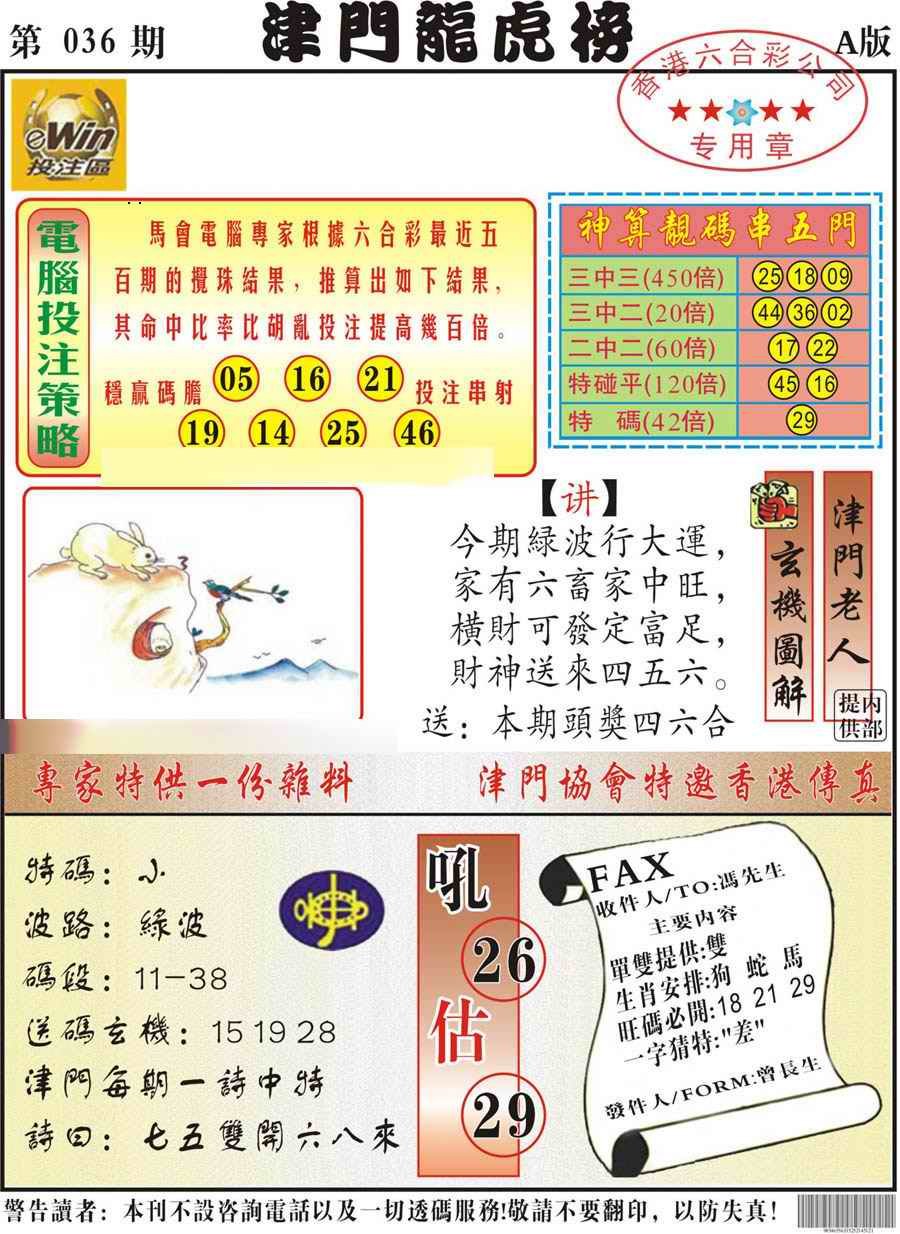 第 036 期
津門龍虎榜
A版
香港六合彩公司
专用章
eWin
投注區
電腦投注策略
馬會電腦專家根據六合彩最近五
百期的攪珠結果，推算出如下結果，
其命中比率比胡亂投注提高幾百倍。
穩贏碼膽 05 16 21 投注串射
19 14 25 46
神算靚碼串五門
三中三(450倍) 25 18 09
三中二(20倍) 44 36 02
二中二(60倍) 17 22
特碰平(120倍) 45 16
特 碼(42倍) 29
【讲】
今期緑波行大運，
家有六畜家中旺，
橫財可發定富足，
財神送來四五六。
送：本期頭獎四六合
玄機圖解
津門老人
内部提供
專家特供一份雜料
津門協會特邀香港傳真
特碼：小
波路：綠波
碼段：11-38
送碼玄機：15 19 28
津門每期一詩中特
詩曰：七五雙開六八來
吼
26
估
29
FAX
收件人/TO:馮先生
主要内容
單雙提供:雙
生肖安排:狗 蛇 馬
旺碼必開:18 21 29
一字猜特:"差"
發件人/FORM:曾長生
警告讀者：本刊不設咨詢電話以及一切透碼服務!敬請不要翻印，以防失真!